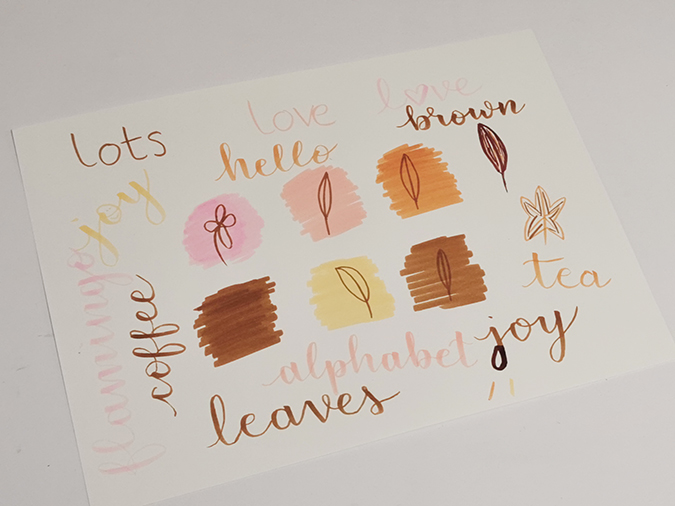 lots
love
love
brown
hello
joy
flamingo
coffee
tea
alphabet
joy
leaves